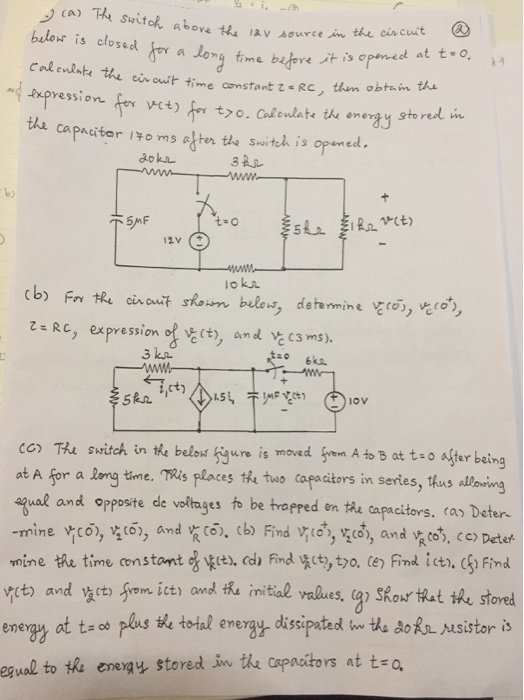 (a) The switch above the 12V source in the circuit ②
below is closed for a long time before it is opened at t=0.
Calculate the circuit time constant τ=RC, then obtain the
expression for v(t) for t>0. Calculate the energy stored in
the capacitor 170 ms after the switch is opened.
20kΩ 3kΩ
5μF t=0 5kΩ 1kΩ + v(t) -
12V
10kΩ
(b) For the circuit shown below, determine vc(0⁻), vc(0⁺),
τ=RC, expression of vc(t), and vc(3ms).
3kΩ t=0 6kΩ
5kΩ i₁(t) 1.5i₁ 1μF + vc(t) - + - 10V
(c) The switch in the below figure is moved from A to B at t=0 after being
at A for a long time. This places the two capacitors in series, thus allowing
equal and opposite dc voltages to be trapped on the capacitors. (a) Deter-
-mine v₁(0⁻), v₂(0⁻), and vR(0⁻). (b) Find v₁(0⁺), v₂(0⁺), and vR(0⁺). (c) Deter-
mine the time constant of vR(t). (d) Find vR(t), t>0. (e) Find i(t). (f) Find
v₁(t) and v₂(t) from i(t) and the initial values. (g) Show that the stored
energy at t=∞ plus the total energy dissipated in the 20kΩ resistor is
equal to the energy stored in the capacitors at t=0.